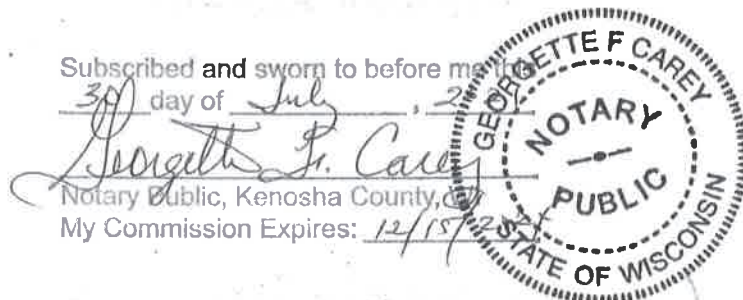 Subscribed and sworn to before me this
30 day of July, 2
Georgette F. Carey
Notary Public, Kenosha County,
My Commission Expires: 12/15/
GEORGETTE F CAREY
NOTARY
PUBLIC
STATE OF WISCONSIN